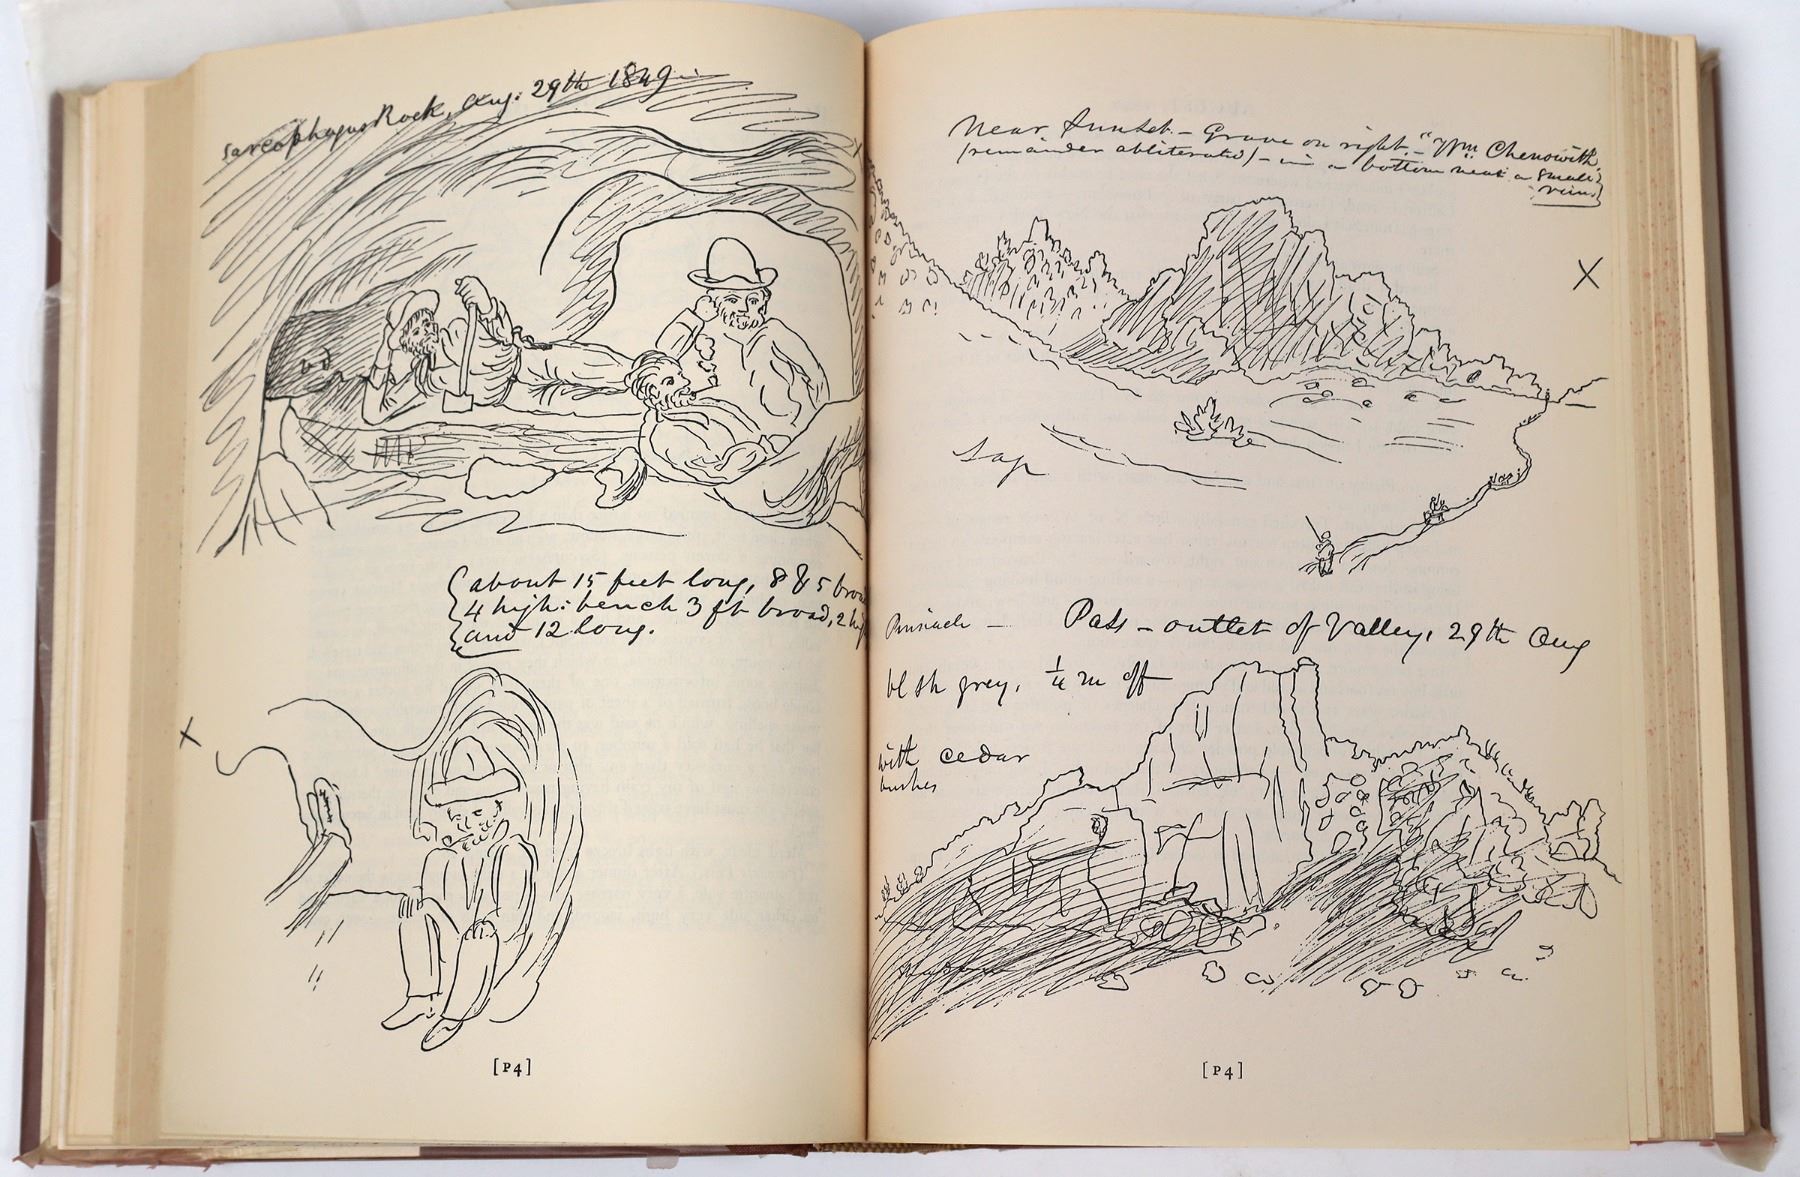 Sarcophagus Rock, Aug: 29th 1849
{about 15 feet long, 8 & 5 broa
4 high: bench 3 ft broad, 2 hi
and 12 long.
X
[P4]
Near Sunset. – Grave on right, – "Wm Chenowith"
(remainder obliterated) – in a bottom near a small
X
Pass – outlet of Valley, 29th Aug
Pinnacle –
grey, ¼ m off
with cedar
bushes
[P4]